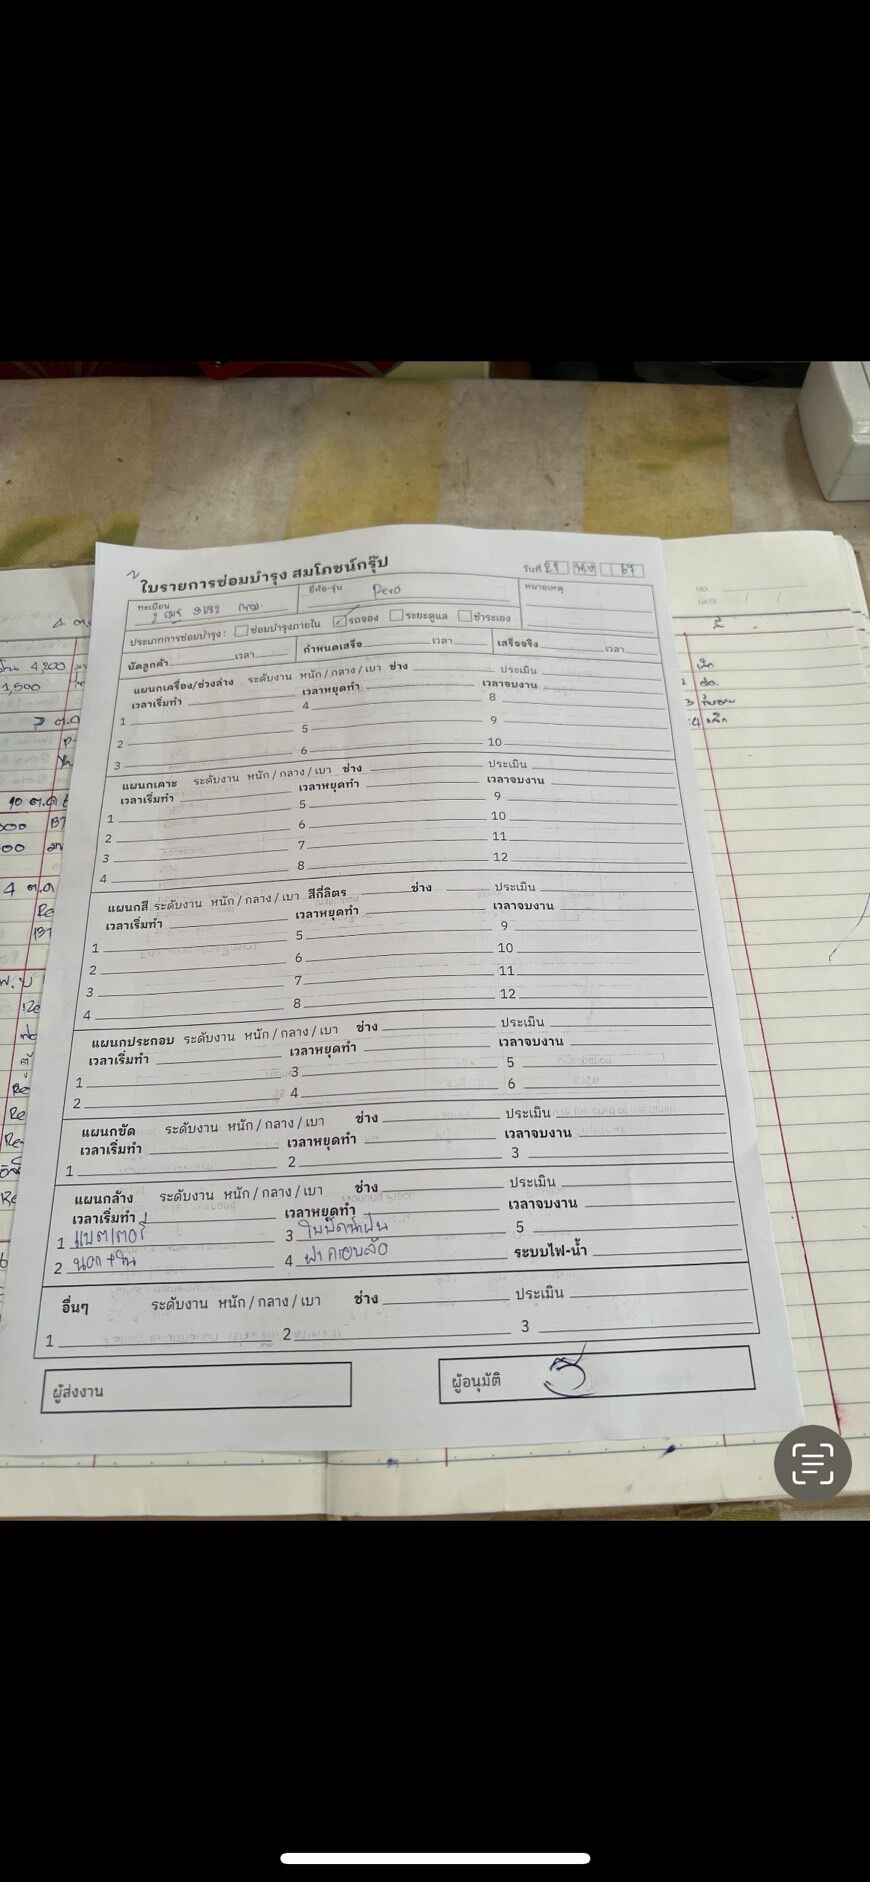 ใบรายการซ่อมบำรุง สมโภชน์กรุ๊ป
วันที่ 21 67
ทะเบียน 3182 กทม. ยี่ห้อ-รุ่น Revo หมายเหตุ
ประเภทการซ่อมบำรุง: ซ่อมบำรุงภายใน รถจอง ระยะดูแล ชำระเอง
นัดลูกค้า เวลา กำหนดเสร็จ เวลา เสร็จจริง เวลา
แผนกเครื่อง/ช่วงล่าง ระดับงาน หนัก / กลาง / เบา ช่าง ประเมิน
เวลาเริ่มทำ เวลาหยุดทำ เวลาจบงาน
1 4 8
2 5 9
3 6 10
แผนกเคาะ ระดับงาน หนัก / กลาง / เบา ช่าง ประเมิน
เวลาเริ่มทำ เวลาหยุดทำ เวลาจบงาน
1 5 9
2 6 10
3 7 11
4 8 12
แผนกสี ระดับงาน หนัก / กลาง / เบา สีกี่ลิตร ช่าง ประเมิน
เวลาเริ่มทำ เวลาหยุดทำ เวลาจบงาน
1 5 9
2 6 10
3 7 11
4 8 12
แผนกประกอบ ระดับงาน หนัก / กลาง / เบา ช่าง ประเมิน
เวลาเริ่มทำ เวลาหยุดทำ เวลาจบงาน
1 3 5
2 4 6
แผนกขัด ระดับงาน หนัก / กลาง / เบา ช่าง ประเมิน
เวลาเริ่มทำ เวลาหยุดทำ เวลาจบงาน
1 2 3
แผนกล้าง ระดับงาน หนัก / กลาง / เบา ช่าง ประเมิน
เวลาเริ่มทำ เวลาหยุดทำ เวลาจบงาน
1 แบตเตอรี่ 3 ใบปัดน้ำฝน 5
2 นอก+ใน 4 ฝาครอบล้อ ระบบไฟ-น้ำ
อื่นๆ ระดับงาน หนัก / กลาง / เบา ช่าง ประเมิน
1 2 3
ผู้ส่งงาน ผู้อนุมัติ
NO.
DATE / /
4,200
1,500